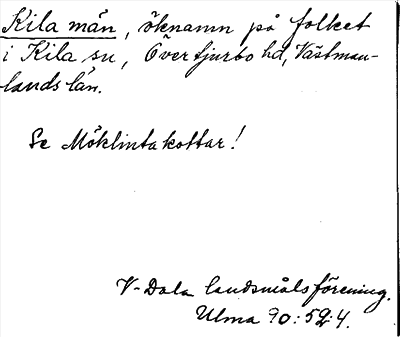 Kila mån, öknamn på folket
i Kila sn, Övertjurbo hd, Västman-
lands län.
Se Möklintakottar!
V-Dala landsmålsförening.
Ulma 90:52:4.